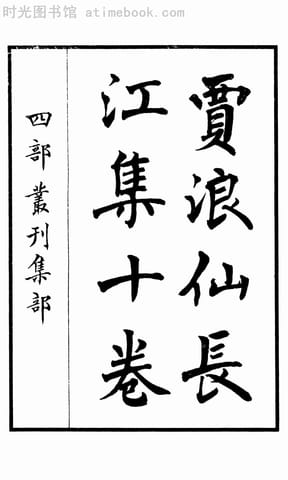 时光图书馆 atimebook.com
賈浪仙長
江集十卷
四部叢刊集部